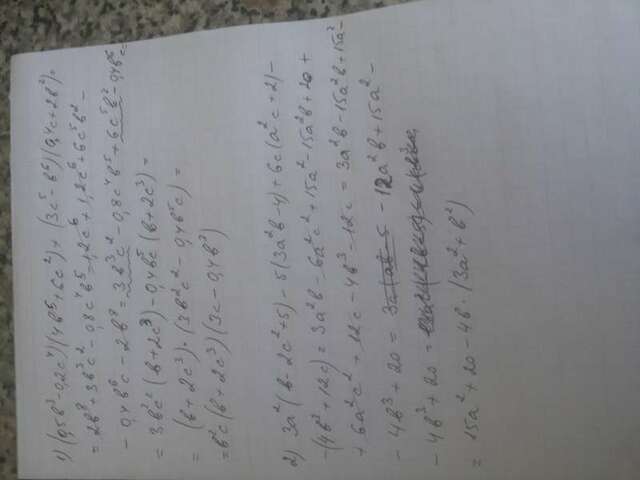 1) (0,5b³-0,2c⁴)(4b⁵+6c²)+(3c⁵-b⁶)(0,4c+2b²)=
=2b⁸+3b³c²-0,8c⁴b⁵-1,2c⁶+1,2c⁶+6c⁵b²-
-0,4b⁶c-2b⁸=3b³c²-0,8c⁴b⁵+6c⁵b²-0,4b⁶c=
=3b²c²(b+2c³)-0,4b⁵c(b+2c³)=
=(b+2c³)·(3b²c²-0,4b⁵c)=
=b²c(b+2c³)(3c-0,4b³)
2) 3a²(b-2c²+5)-5(3a²b-4)+6c(a²c+2)-
-(4b³+12c)=3a²b-6a²c²+15a²-15a²b+20+
+6a²c²+12c-4b³-12c=3a²b-15a²b+15a²-
-4b³+20= -12a²b+15a²-
-4b³+20=
=15a²+20-4b·(3a²+b²)